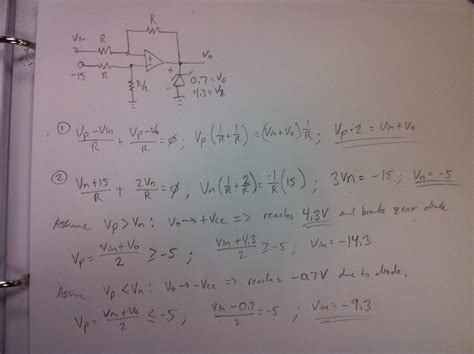 R
Vin R Vo
-15 R
R/2
+ -
0.7=V0
4.3=Vz
① (Vp-Vin)/R + (Vp-Vo)/R = ∅ ; Vp(1/R+1/R)=(Vin+Vo)1/R ; Vp·2=Vin+Vo
② (Vn+15)/R + 2Vn/R = ∅ ; Vn(1/R+2/R)=-1/R(15) ; 3Vn=-15 ; Vn=-5
Assume Vp>Vn: Vo→+Vcc => reaches 4.3V and breaks zener diode
Vp=(Vin+Vo)/2 ≥ -5 ; (Vin+4.3)/2 ≥ -5 ; Vin=-14.3
Assume Vp<Vn: Vo→-Vcc => reaches -0.7V due to diode.
Vp=(Vin+Vo)/2 ≤ -5 ; (Vin-0.7)/2 = -5 ; Vin=-9.3